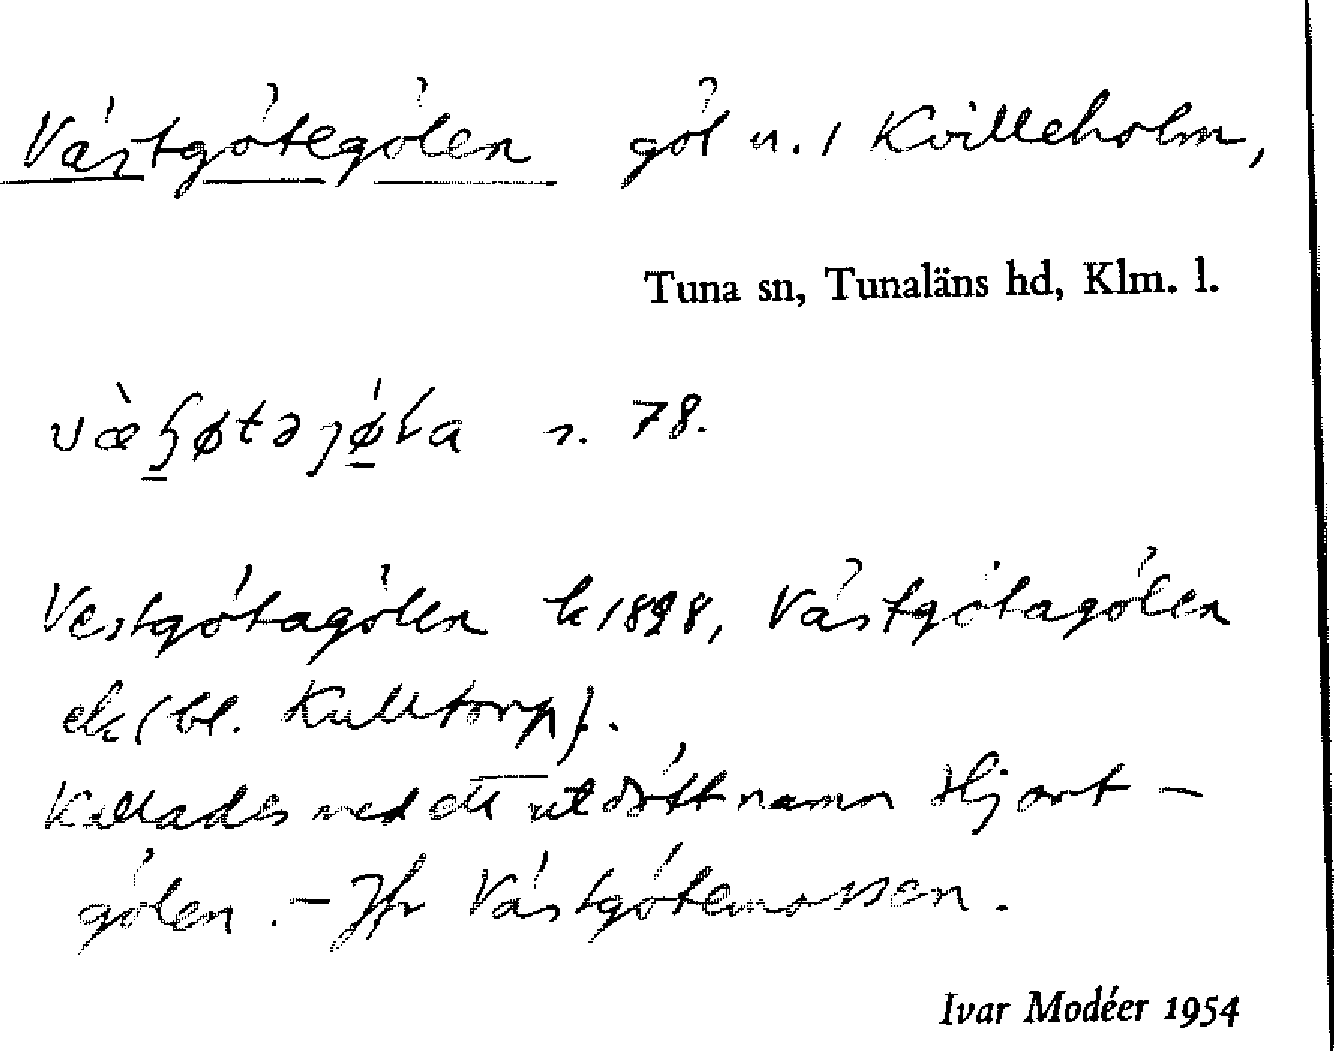 Västgötegölen göl n. i Kvilleholm,
Tuna sn, Tunaläns hd, Klm. l.
s. 78.
Vestgötagölen k 1898, Västgötagölen
ek (bl. Kulltorp).
Kallades med ett utdött namn Hjort-
gölen. – Jfr Västgötemossen.
Ivar Modéer 1954